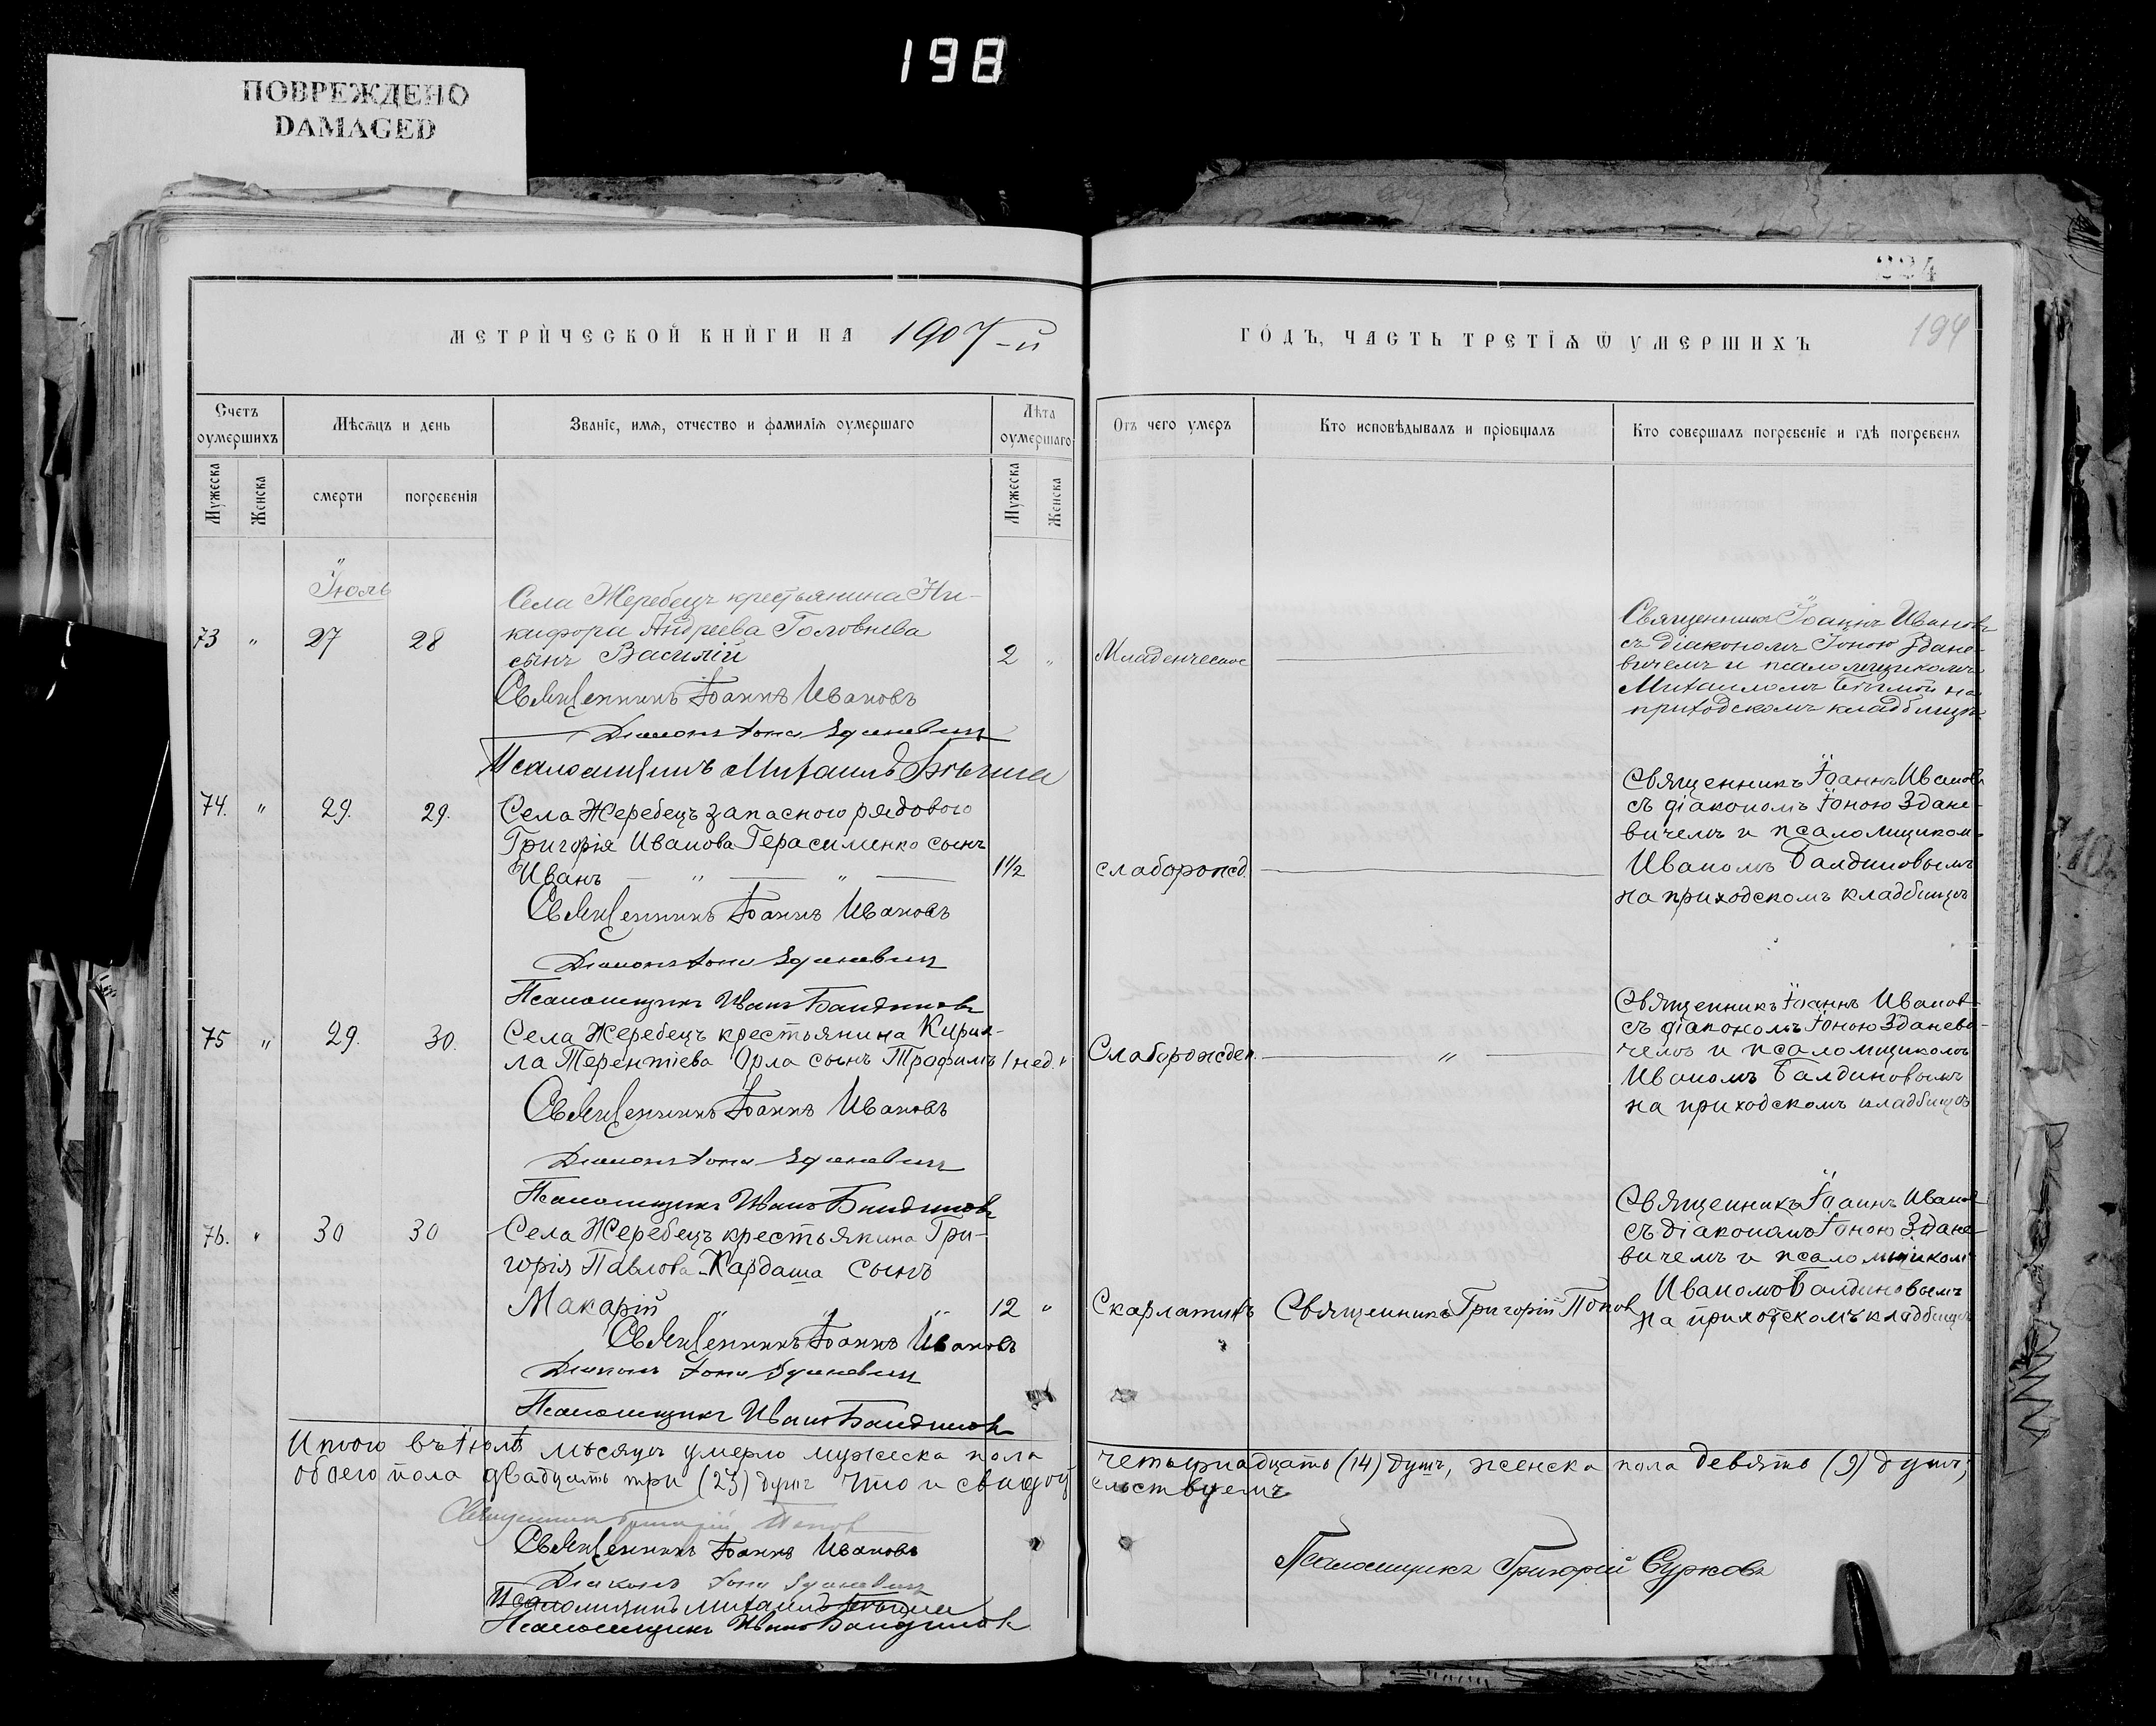 198
ПОВРЕЖДЕНО
DAMAGED
224
194
МЕТРИЧЕСКОЙ КНИГИ НА 1907-й
ГОДЪ, ЧАСТЬ ТРЕТІѦ Ѿ УМЕРШИХЪ
Счетъ оумершихъ
Мѣсѧцъ и день
Званіе, имѧ, отчество и фамиліѧ оумершаго
Лѣта оумершаго
Отъ чего умеръ
Кто исповѣдывалъ и пріобщалъ
Кто совершалъ погребеніе и гдѣ погребенъ
Мужеска
Женска
смерти
погребенія
Мужеска
Женска
Іюль
Села Жеребецъ крестьянина Ни-
73 " 27 28 кифора Андреева Головнева
сынъ Василій 2 " Младенческое
Священникъ Іоаннъ Ивановъ
Діаконъ Іона Зданевичъ
Псаломщикъ Михаилъ
Священникъ Іоаннъ Ивановъ
съ діакономъ Іоною Здане-
вичемъ и псаломщикомъ
Михаиломъ на
приходскомъ кладбищѣ
74. " 29. 29. Села Жеребецъ запасного рядового
Григорія Иванова Герасименко сынъ
Иванъ " " 1 1/2 слаборожд.
Священникъ Іоаннъ Ивановъ
Діаконъ Іона Зданевичъ
Псаломщикъ Иванъ Балдиновъ
Священникъ Іоаннъ Ивановъ
съ діакономъ Іоною Здане-
вичемъ и псаломщикомъ
Иваномъ Балдиновымъ
на приходскомъ кладбищѣ
75 " 29. 30. Села Жеребецъ крестьянина Кирил-
ла Терентіева Орла сынъ Трофимъ 1 нед. " Слаборожден. "
Священникъ Іоаннъ Ивановъ
Діаконъ Іона Зданевичъ
Псаломщикъ Иванъ Балдиновъ
Священникъ Іоаннъ Иванов
съ діакономъ Іоною Зданеви-
чемъ и псаломщикомъ
Иваномъ Балдиновымъ
на приходскомъ кладбищѣ
76. " 30 30 Села Жеребецъ крестьянина Гри-
горія Павлова Кардаша сынъ
Макарій " " " 12 " Скарлатинъ Священникъ Григорій Попов
Священникъ Іоаннъ Ивановъ
Діаконъ Іона Зданевичъ
Псаломщикъ Иванъ Балдиновъ
Священникъ Іоаннъ Иванов
съ діакономъ Іоною Здане-
вичемъ и псаломщикомъ
Иваномъ Балдиновымъ
на приходскомъ кладбищѣ
Итого въ Іюлѣ мѣсяцѣ умерло мужеска пола четырнадцать (14) душъ, женска пола девять (9) душъ,
обоего пола двадцать три (23) душъ что и свидѣтельствуемъ
Священникъ Григорій Попов
Священникъ Іоаннъ Ивановъ
Діаконъ Іона Зданевичъ
Псаломщикъ Михаилъ
Псаломщикъ Иванъ Балдинов
Псаломщикъ Григорій Сурковъ